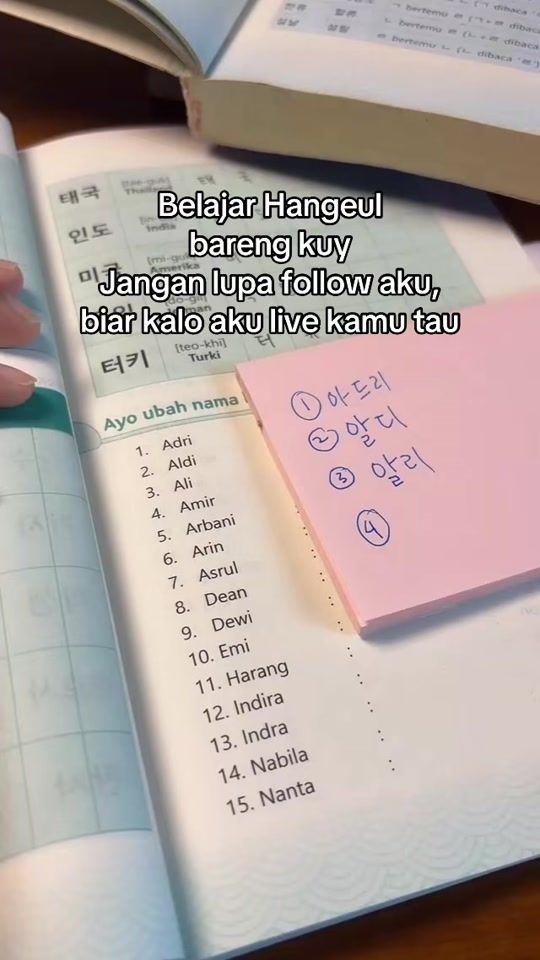 한류 합류
ㄴ bertemu ㄹ (ㄴ+ㄹ dibaca
설날 설랄
ㄹ bertemu ㄴ (ㄴ dibaca 'ㄹ')
태국 Thailand 태 국
인도 India
Belajar Hangeul
bareng kuy
미국 [mi-guk] Amerika
Jangan lupa follow aku,
biar kalo aku live kamu tau
터키 [teo-khi] Turki 터
Ayo ubah nama
1. Adri
2. Aldi
3. Ali
4. Amir
5. Arbani
6. Arin
7. Asrul
8. Dean
9. Dewi
10. Emi
11. Harang
12. Indira
13. Indra
14. Nabila
15. Nanta
① 아드리
② 알디
③ 알리
④